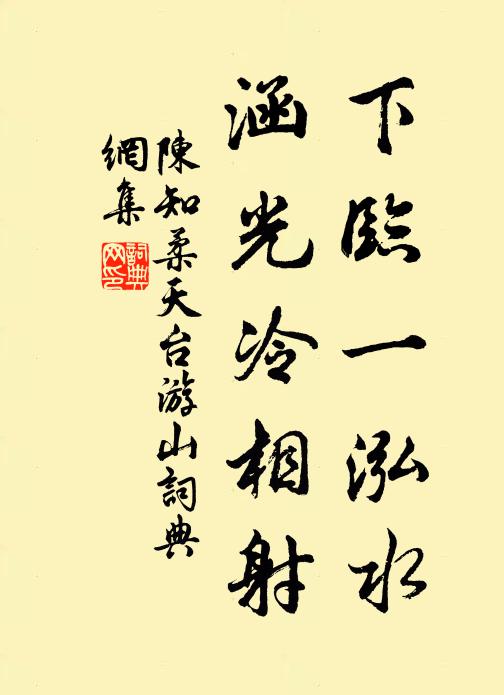 下臨一泓水
涵光冷相射
陳知柔天台游山詞典
網集
詞典
网印